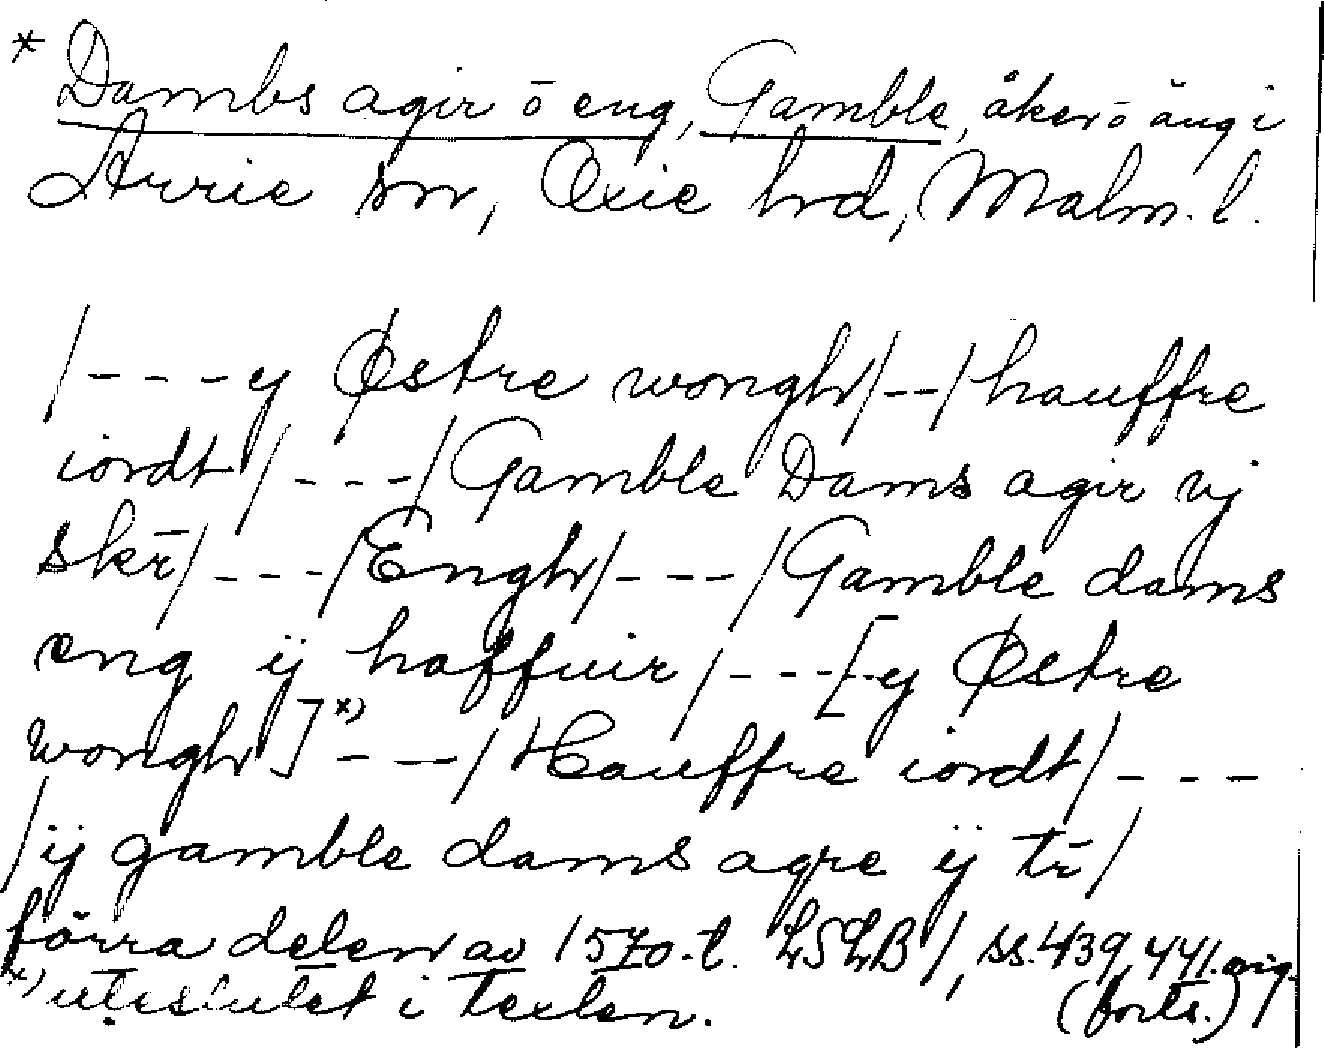 * Dambs agir ō eng, Gamble, åker ō äng i
Arrie sn, Oxie hrd, Malm. l.
/---y Østre wongh/--/hauffre
iordt/---/Gamble Dams agir vj
skr̄/---/Engh/---/Gamble dams
eng ij haffuir/---[y Østre
wongh]*) ---/Hauffre iordt/---
/ij gamble dams agre ij tr̄/
förra delen av 1570-t. LSLB I, ss. 439, 441. orig.
*) uteslutet i texten. (forts.)